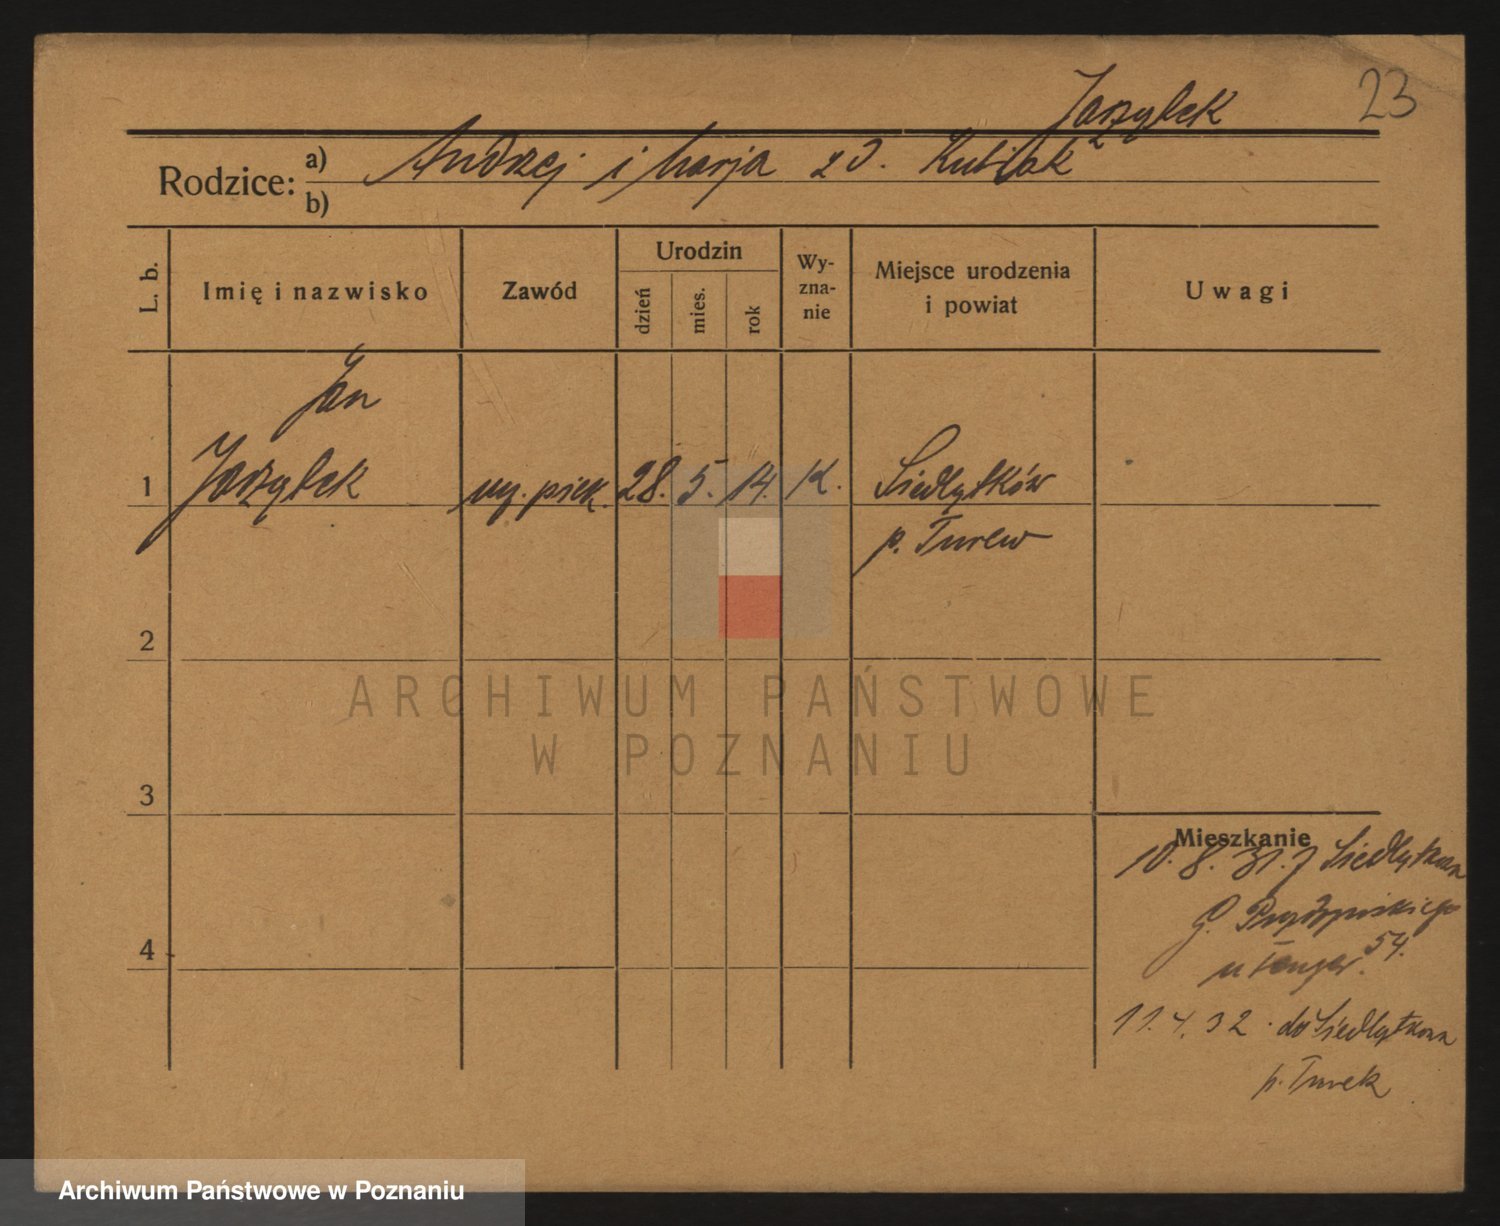 23
Jarzybek
Rodzice: a) Andrzej i Marja z d. Kubiak
b)
L. b. Imię i nazwisko Zawód Urodzin dzień mies. rok Wy-zna-nie Miejsce urodzenia i powiat Uwagi
Jan
1 Jarzybek ucz. piek. 28. 5. 14. K. Siedlątków
p. Turew
2
ARCHIWUM PAŃSTWOWE
W POZNANIU
3
Mieszkanie
10. 8. 31. z Siedlątkowa
G.
54.
4
11. 4. 32. do Siedlątkowa
p. Turek
Archiwum Państwowe w Poznaniu